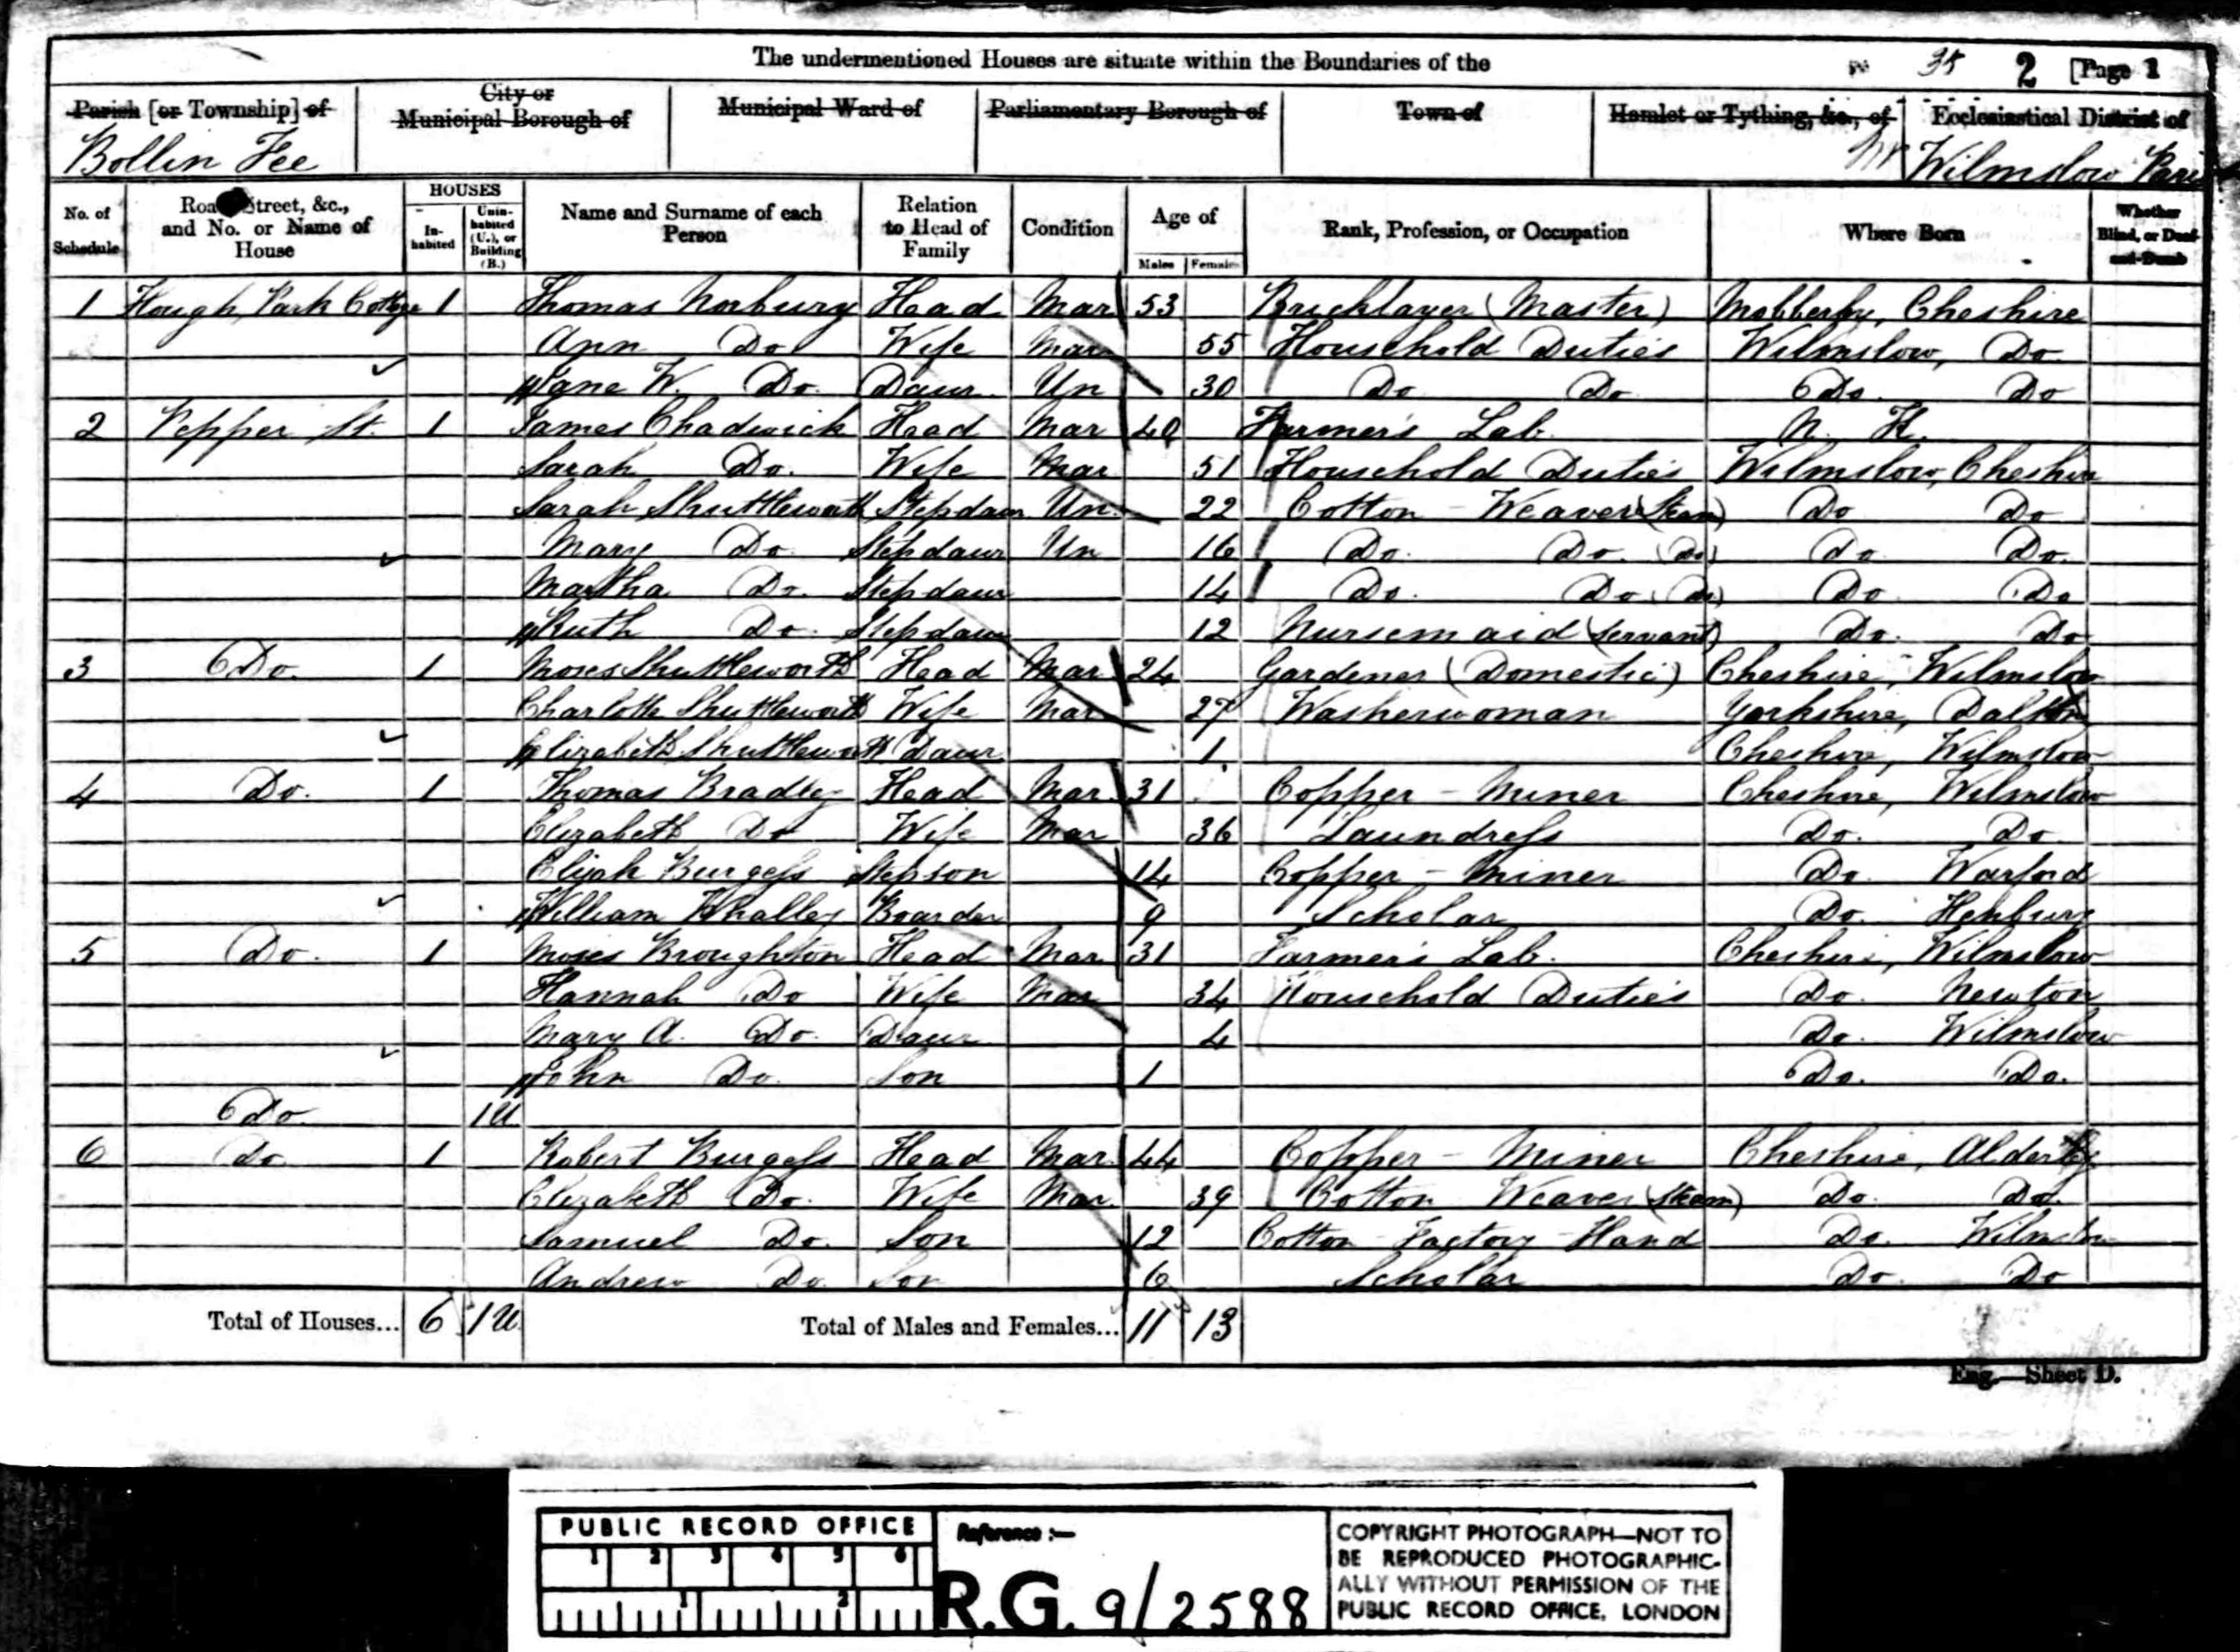 The undermentioned Houses are situate within the Boundaries of the 35 2 [Page 1
Parish [or Township] of City or Municipal Borough of Municipal Ward of Parliamentary Borough of Town of Hamlet or Tything, &c., of Ecclesiastical District of
Bollin Fee Wilmslow
No. of Schedule Road, Street, &c., and No. or Name of House HOUSES Inhabited Uninhabited (U.), or Building (B.) Name and Surname of each Person Relation to Head of Family Condition Age of Males Females Rank, Profession, or Occupation Where Born Whether Blind, or Deaf-and-Dumb
1 Hough Park Cottge 1 Thomas Norbury Head Mar 53 Bricklayer (Master) Mobberley, Cheshire
Ann Do Wife Mar 55 Household Duties Wilmslow, Do
Jane W. Do. Daur. Un 30 Do Do Do. Do
2 Pepper St. 1 James Chadwick Head Mar 40 Farmer's Lab. N. K.
Sarah Do. Wife Mar 51 Household Duties Wilmslow, Cheshire
Sarah Shuttleworth Stepdaur Un. 22 Cotton - Weaver (Steam) Do Do
Mary Do. Stepdaur Un 16 Do. Do. (Do) Do Do.
Martha Do. Stepdaur 14 Do. Do. (Do) Do Do
Ruth Do. Stepdaur 12 Nursemaid (Servant) Do. Do
3 Do. 1 Moses Shuttleworth Head Mar 24 Gardener (Domestic) Cheshire, Wilmslow
Charlotte Shuttleworth Wife Mar 27 Washerwoman Yorkshire, Dalton
Elizabeth Shuttleworth Daur 1 Cheshire, Wilmslow
4 Do. 1 Thomas Bradley Head Mar. 31 Copper - Miner Cheshire, Wilmslow
Elizabeth Do Wife Mar 36 Laundress Do. Do
Elijah Burgess Stepson 14 Copper - Miner Do. Warford
William Whalley Boarder 9 Scholar Do. Henbury
5 Do. 1 Moses Broughton Head Mar 31 Farmer's Lab. Cheshire, Wilmslow
Hannah Do Wife Mar 34 Household Duties Do. Newton
Mary A. Do. Daur 4 Do. Wilmslow
John Do. Son 1 Do. Do.
Do. 1U
6 Do 1 Robert Burgess Head Mar. 44 Copper - Miner Cheshire, Alderley
Elizabeth Do. Wife Mar. 39 Cotton Weaver (Steam) Do. Do.
Samuel Do. Son 12 Cotton Factory Hand Do. Wilmslow
Andrew Do Son 6 Scholar Do. Do
Total of Houses... 6 1U Total of Males and Females... 11 13
Eng.—Sheet D.
PUBLIC RECORD OFFICE
1 2 3 4 5 6
1 2
Reference :—
R.G. 9/2588
COPYRIGHT PHOTOGRAPH—NOT TO
BE REPRODUCED PHOTOGRAPHIC-
ALLY WITHOUT PERMISSION OF THE
PUBLIC RECORD OFFICE, LONDON